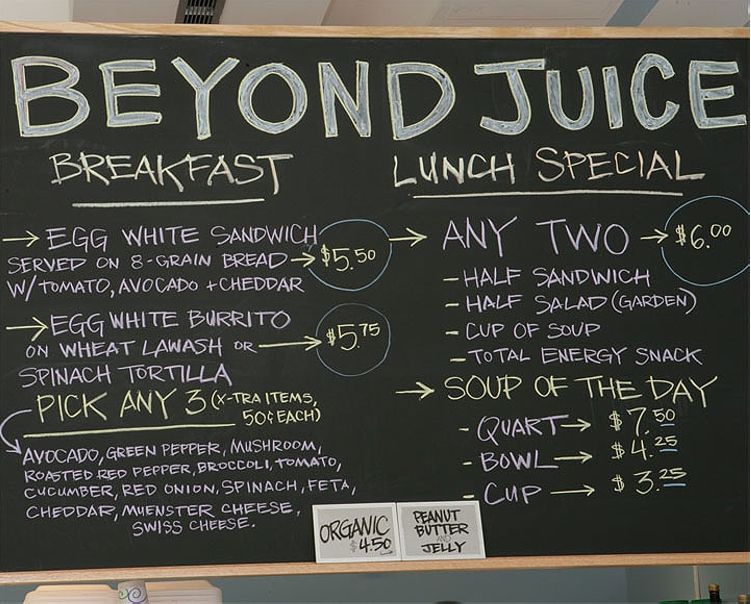 BEYOND JUICE
BREAKFAST
→ EGG WHITE SANDWICH
SERVED ON 8-GRAIN BREAD → $5.50
W/TOMATO, AVOCADO + CHEDDAR
→ EGG WHITE BURRITO
ON WHEAT LAWASH OR → $5.75
SPINACH TORTILLA
PICK ANY 3 (X-TRA ITEMS,
50¢ EACH)
AVOCADO, GREEN PEPPER, MUSHROOM,
ROASTED RED PEPPER, BROCCOLI, TOMATO,
CUCUMBER, RED ONION, SPINACH, FETA,
CHEDDAR, MUENSTER CHEESE,
SWISS CHEESE.
LUNCH SPECIAL
→ ANY TWO → $6.00
- HALF SANDWICH
- HALF SALAD (GARDEN)
- CUP OF SOUP
- TOTAL ENERGY SNACK
→ SOUP OF THE DAY
- QUART → $7.50
- BOWL → $4.25
- CUP → $3.25
ORGANIC
$4.50
PEANUT
BUTTER
AND
JELLY